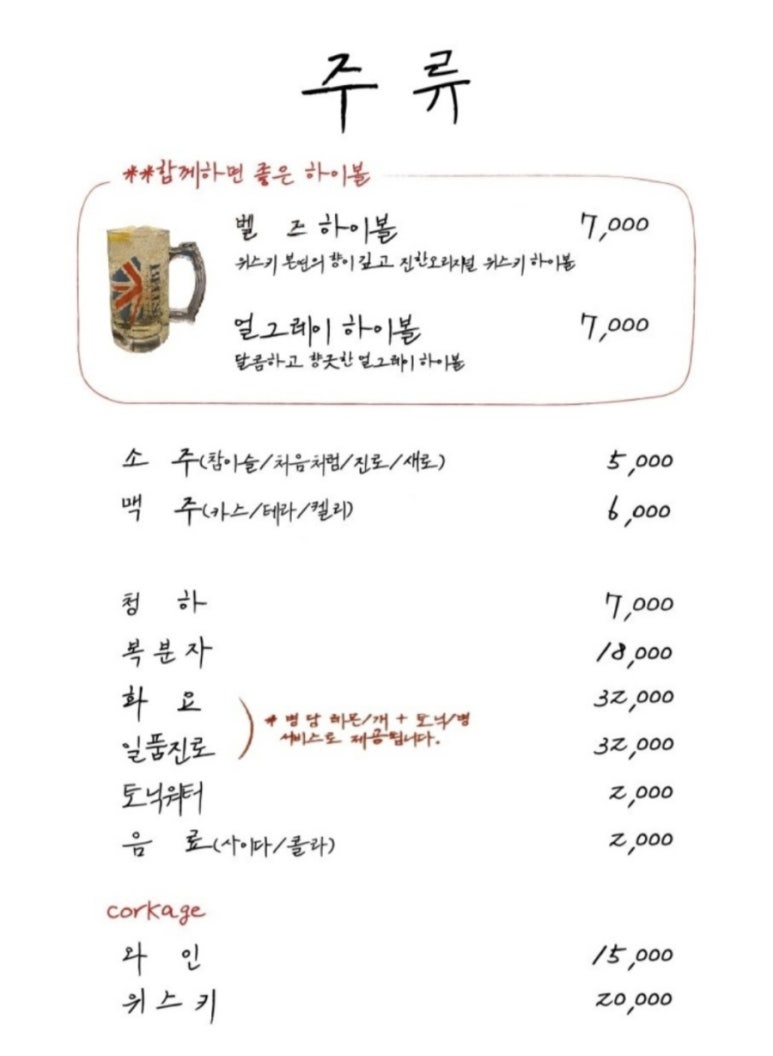 주 류
**함께하면 좋은 하이볼
벨 즈 하이볼 7,000
위스키 본연의 향이 깊고 진한 오리지널 위스키 하이볼
얼그레이 하이볼 7,000
달콤하고 향긋한 얼그레이 하이볼
소 주(참이슬/처음처럼/진로/새로) 5,000
맥 주(카스/테라/켈리) 6,000
청 하 7,000
복분자 18,000
화 요 32,000
일품진로 32,000
* 병 당 레몬1개 + 토닉1병
서비스로 제공됩니다.
토닉워터 2,000
음 료(사이다/콜라) 2,000
corkage
와 인 15,000
위스키 20,000